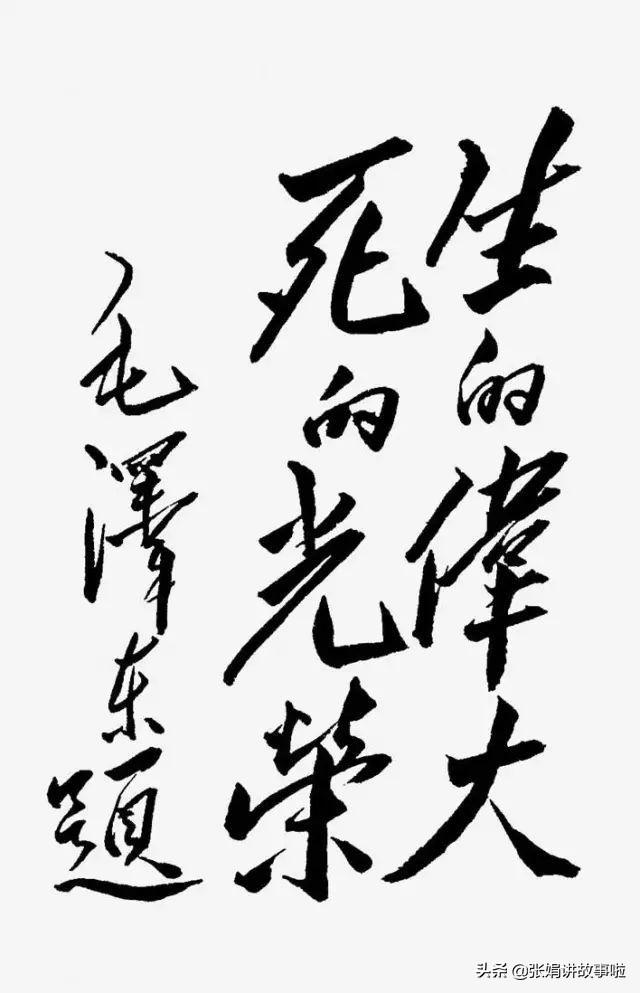 生的偉大
死的光榮
毛澤东題
头条 @张娟讲故事啦